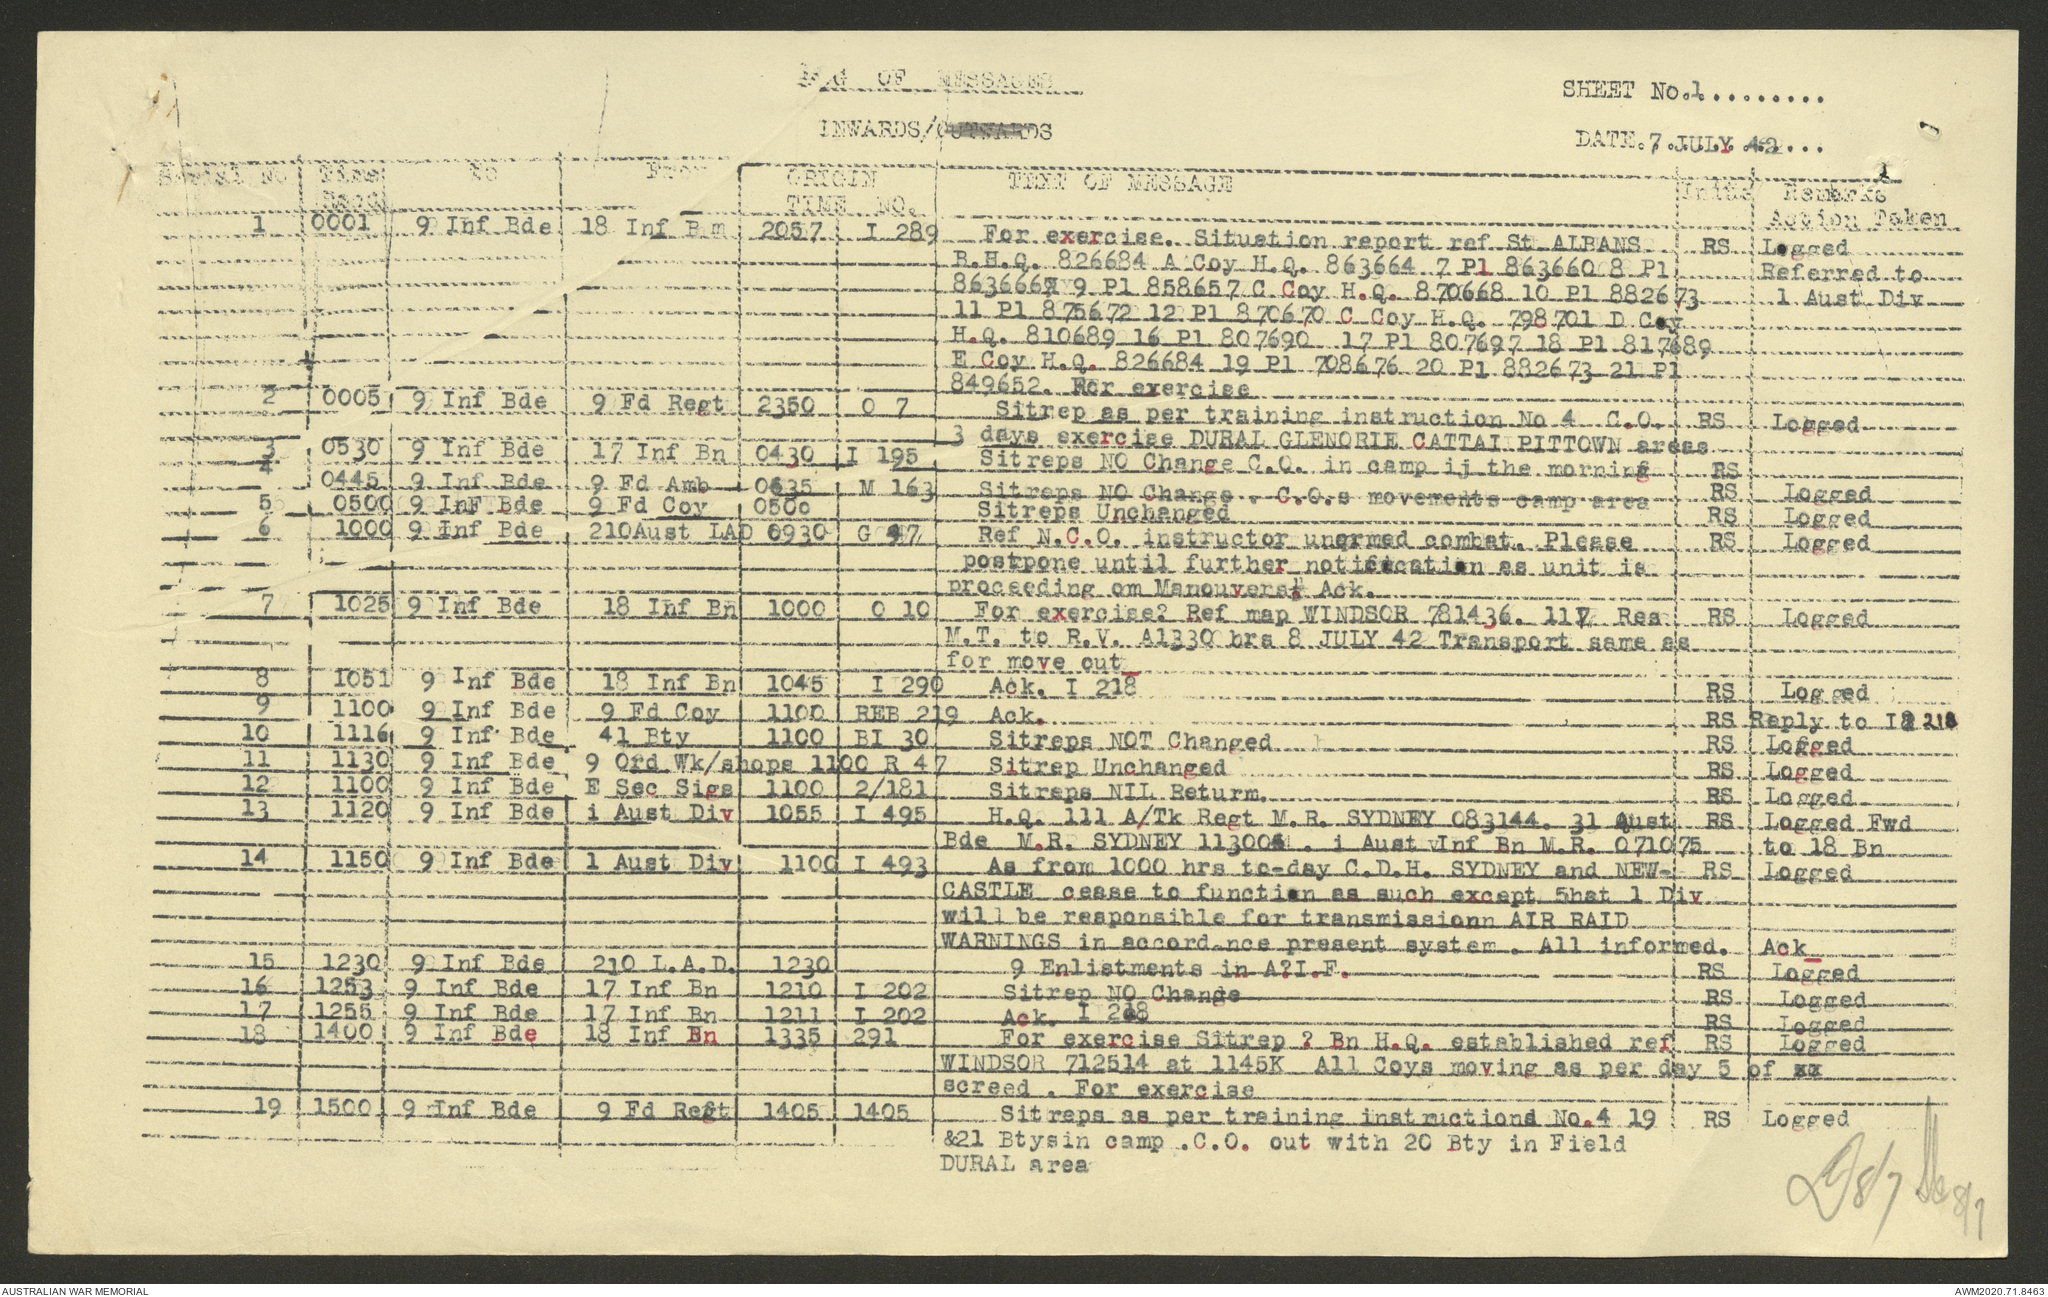 LOG OF MESSAGES
SHEET No.1.........
INWARDS/OUTWARDS
DATE.7.JULY.42....
1
Serial No Time Recd To From ORIGIN TIME NO. TEXT OF MESSAGE Inits Remarks Action Taken
1 0001 9 Inf Bde 18 Inf Bm 2057 I 289 For exercise. Situation report ref St ALBANS RS Logged
B.H.Q. 826684 A Coy H.Q. 863664 7 Pl 863660 8 Pl Referred to
863666 9 Pl 858657 C Coy H.Q. 870668 10 Pl 882673 1 Aust Div
11 Pl 875672 12 Pl 870670 C Coy H.Q. 798701 D Coy
H.Q. 810689 16 Pl 807690 17 Pl 807697 18 Pl 817689
E Coy H.Q. 826684 19 Pl 708676 20 Pl 882673 21 Pl
849652. For exercise
2 0005 9 Inf Bde 9 Fd Regt 2350 O 7 Sitrep as per training instruction No 4 C.O. RS Logged
3 days exercise DURAL GLENORIE CATTAI PITTOWN areas
3 0530 9 Inf Bde 17 Inf Bn 0430 I 195 Sitreps NO Change C.O. in camp ij the morning RS
4 0445 9 Inf Bde 9 Fd Amb 0635 M 163 Sitreps NO Change . C.O.s movements camp area RS Logged
5 0500 9 InF Bde 9 Fd Coy 0500 Sitreps Unchanged RS Logged
6 1000 9 Inf Bde 210Aust LAD 0930 G 47 Ref N.C.O. instructor unarmed combat. Please RS Logged
postpone until further notification as unit is
proceeding om Manouvers. Ack.
7 1025 9 Inf Bde 18 Inf Bn 1000 O 10 For exercise? Ref map WINDSOR 781436. 117 Res RS Logged
M.T. to R.V. A1330 hrs 8 JULY 42 Transport same as
for move out
8 1051 9 Inf Bde 18 Inf Bn 1045 I 290 Ack. I 218 RS Logged
9 1100 9 Inf Bde 9 Fd Coy 1100 REB 219 Ack. RS Reply to I 218
10 1116 9 Inf Bde 41 Bty 1100 BI 30 Sitreps NOT Changed RS Logged
11 1130 9 Inf Bde 9 Ord Wk/shops 1100 R 47 Sitrep Unchanged RS Logged
12 1100 9 Inf Bde E Sec Sigs 1100 2/181 Sitreps NIL Returm. RS Logged
13 1120 9 Inf Bde i Aust Div 1055 I 495 H.Q. 111 A/Tk Regt M.R. SYDNEY 083144. 31 Aust RS Logged Fwd
Bde M.R. SYDNEY 113004 . i Aust Inf Bn M.R. 071075 to 18 Bn
14 1150 9 Inf Bde 1 Aust Div 1100 I 493 As from 1000 hrs to-day C.D.H. SYDNEY and NEW- RS Logged
CASTLE cease to function as such except 5hat 1 Div
will be responsible for transmissionn AIR RAID
WARNINGS in accordance present system . All informed. Ack
15 1230 9 Inf Bde 210 L.A.D. 1230 9 Enlistments in A?I.F. RS Logged
16 1253 9 Inf Bde 17 Inf Bn 1210 I 202 Sitrep NO Change RS Logged
17 1255 9 Inf Bde 17 Inf Bn 1211 I 202 Ack. I 218 RS Logged
18 1400 9 Inf Bde 18 Inf Bn 1335 291 For exercise Sitrep ? Bn H.Q. established ref RS Logged
WINDSOR 712514 at 1145K All Coys moving as per day 5 of xx
screed . For exercise
19 1500 9 Inf Bde 9 Fd Regt 1405 1405 Sitreps as per training instructions No.4 19 RS Logged
&21 Btysin camp .C.O. out with 20 Bty in Field
DURAL area
8/7 8/7
AUSTRALIAN WAR MEMORIAL
AWM2020.71.8463